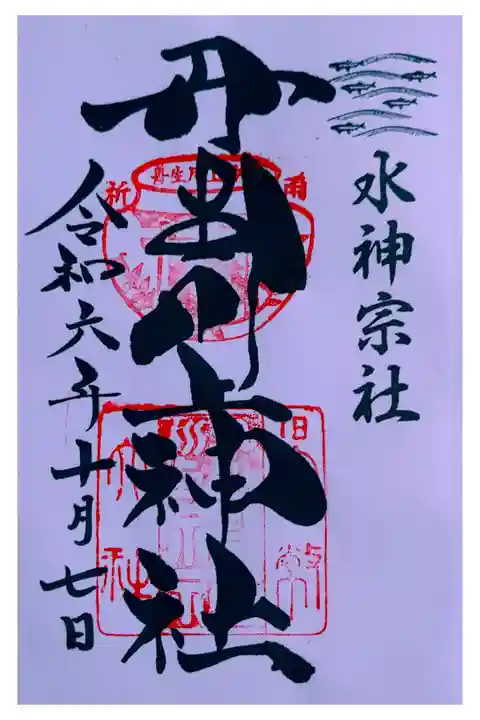 水神宗社
丹生川上神社
令和六年十月七日
祈
雨
社